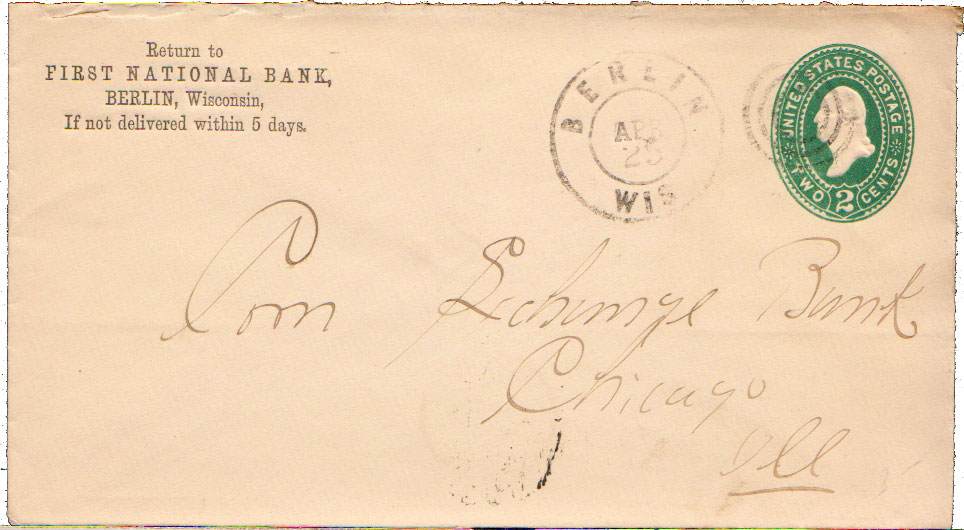 Return to
FIRST NATIONAL BANK,
BERLIN, Wisconsin,
If not delivered within 5 days.
BERLIN
APR
25
WIS
UNITED STATES POSTAGE
TWO 2 CENTS
Corn Exchange Bank
Chicago
Ill